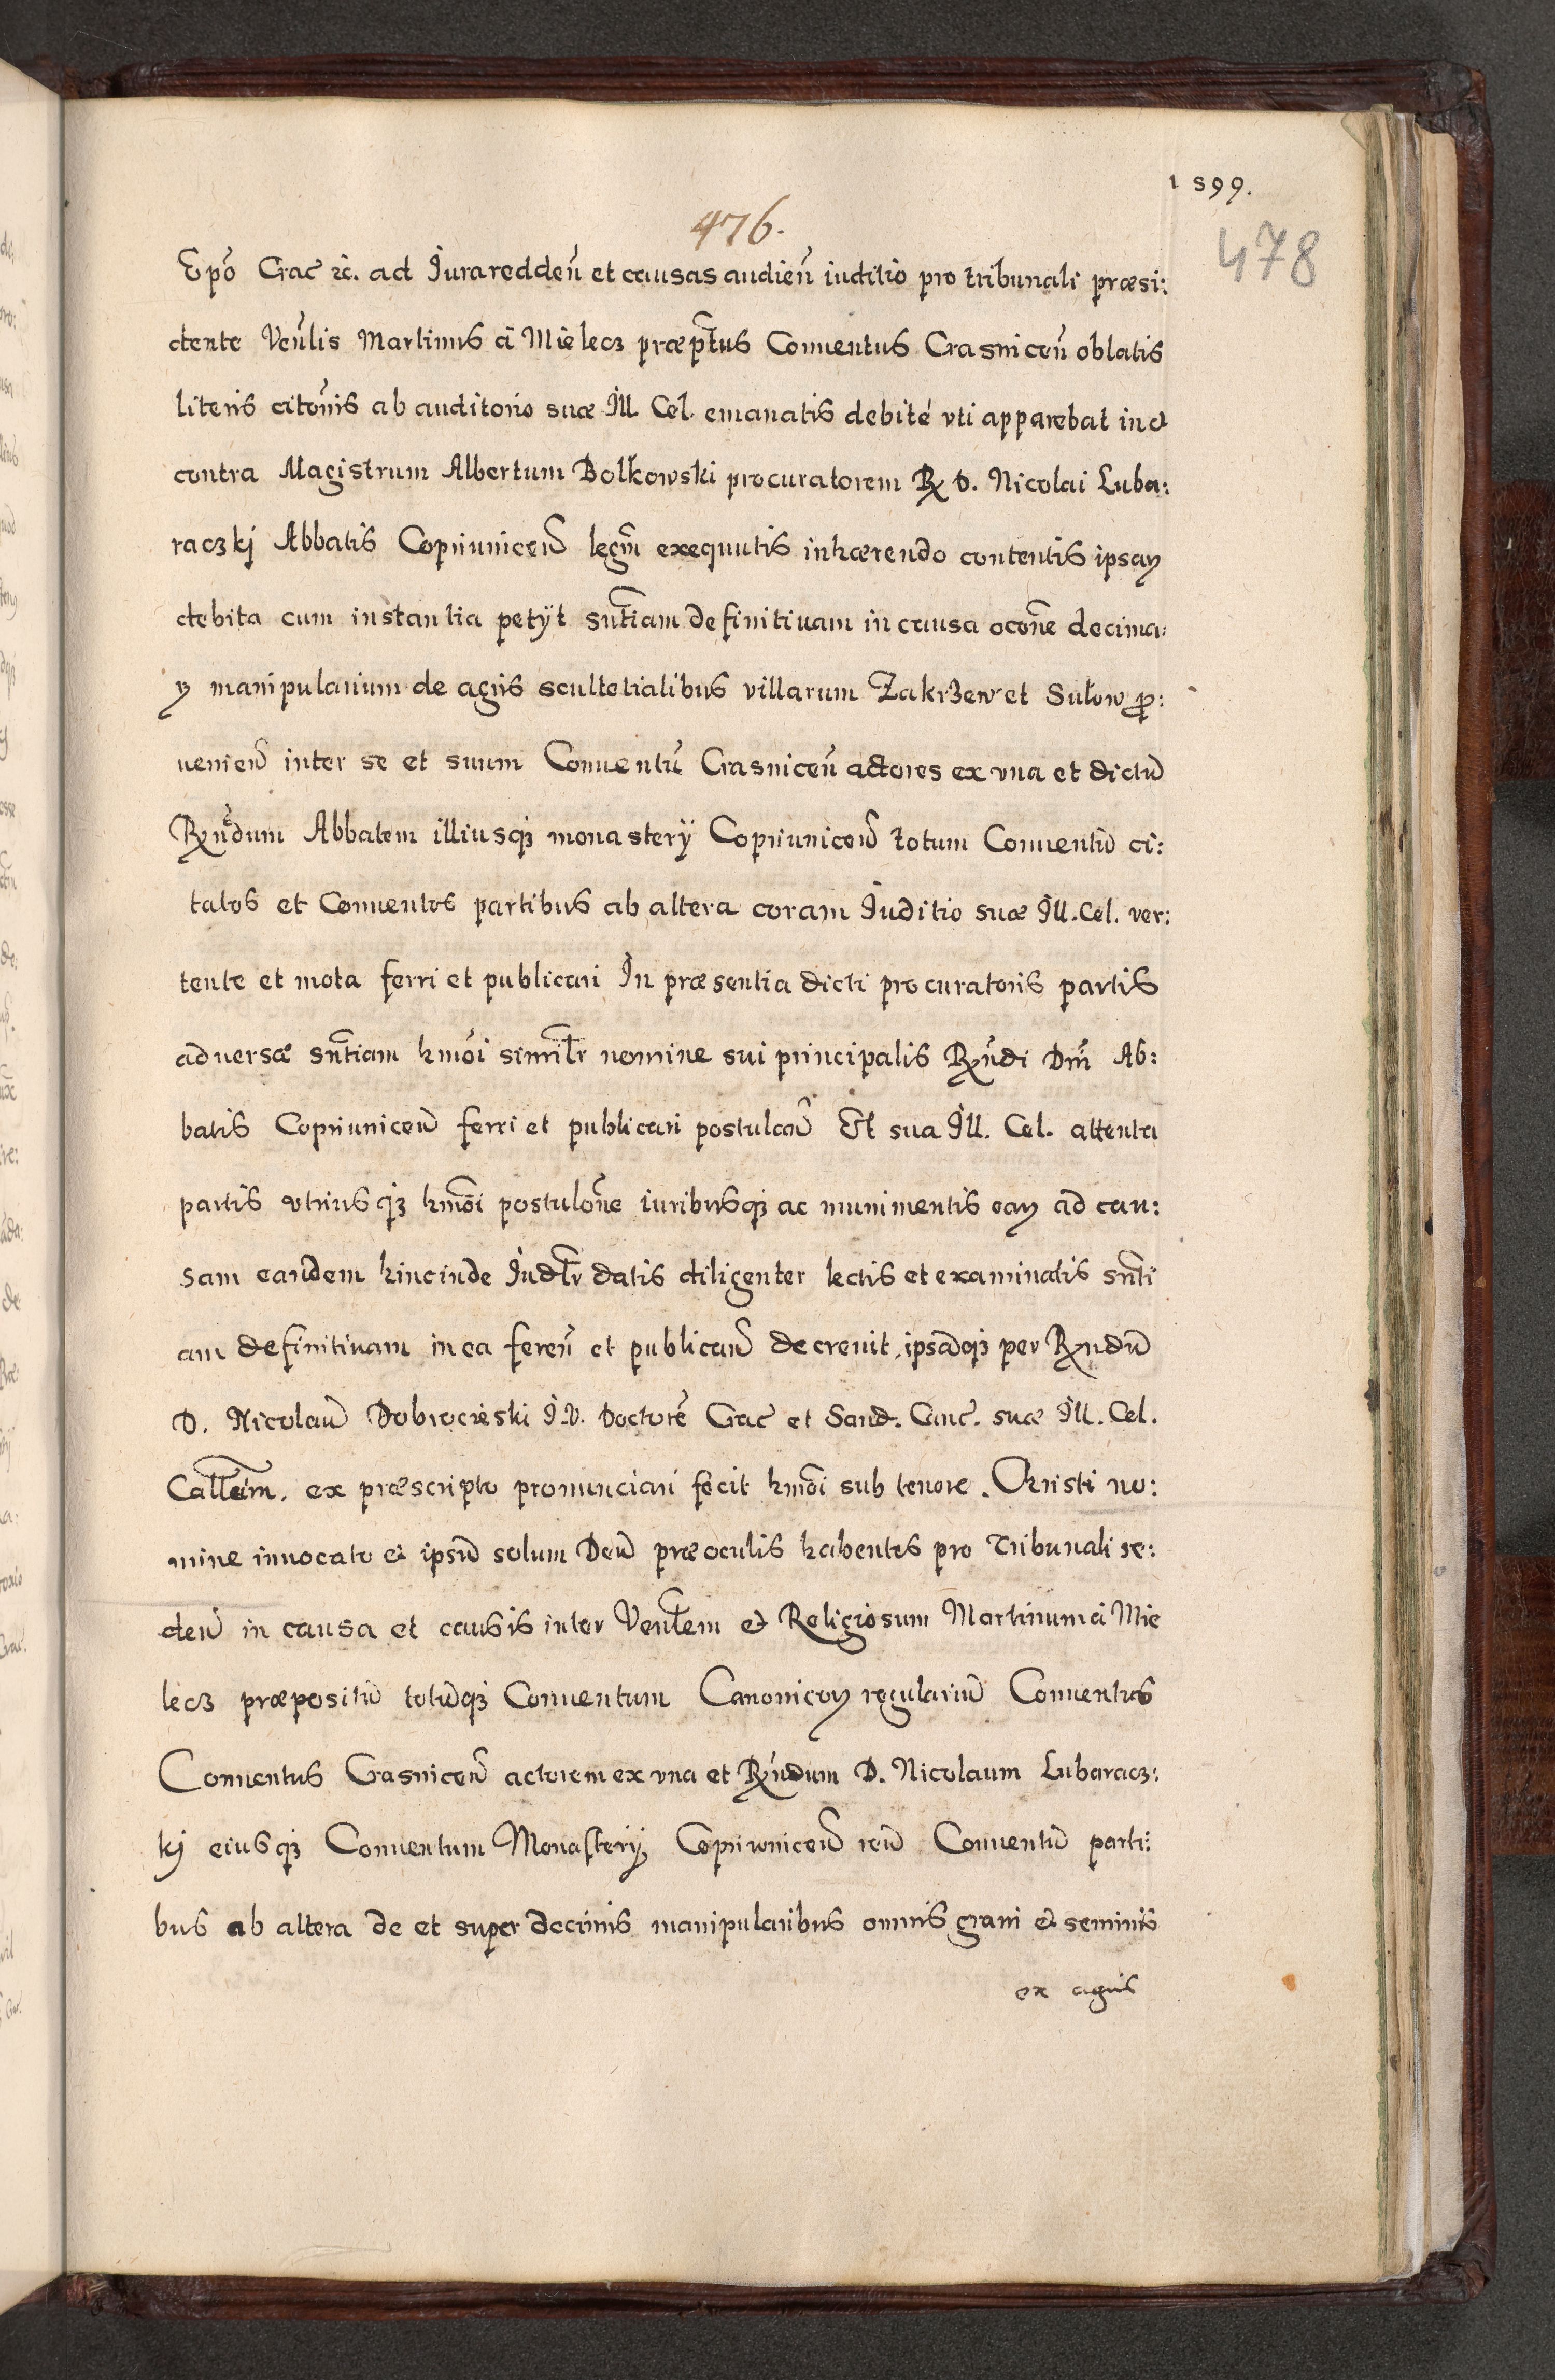 1599.
476.
478
Epõ Crac̃ ꝛc. ad Iura reddeñ et causas audieñ iuditio pro tribunali præsi:
dente Veñlis Martinus à Mielecz præp̃tus Conuentus Crasniceñ oblatis
literis citõnis ab auditorio suæ Ill. Cel. emanatis debité vti apparebat in et
contra Magistrum Albertum Bolkowski procuratorem R D. Nicolai Luba:
raczkj Abbatis Copriuniceñ legm̃ exequutis inhærendo contentis ipsaꝝ
debita cum instantia petÿt sñtiam definitiuam in causa oc̃one decima:
ꝝ manipularium de agris scultetialibus villarum Zakrzew et Sułow ꝓ:
uenieñ inter se et suum Conuentũ Crasniceñ actores ex vna et dictũ
Rñdum Abbatem illiusqꝫ monasterÿ Copriuniceñ totum Conuentũ ci:
tatos et Conuentos partibus ab altera coram Iuditio suæ Ill. Cel. ver:
tente et mota ferri et publicari In præsentia dicti procuratoris partis
aduersæ sñtiam hmõi simil̃r nomine sui principalis Rñdi Dm̃i Ab:
batis Copriuniceñ ferri et publicari postulañ Et sua Ill. Cel. attenta
partis vtriusqꝫ hmõi postulõne iuribusqꝫ ac munimentis eaꝝ ad cau:
sam eandem hincinde Iudl̃r datis diligenter lectis et examinatis sñti
am definitiuam in ea fereñ et publicañ decreuit, ipsãqꝫ per Rñdũ
D. Nicolaũ Dobrocieski I.V. Doctorẽ Crac̃ et Sand. Canc̃. suæ Ill. Cel.
Call̃em. ex præscripto pronunciari fecit hmõi sub tenore. Christi no:
mine inuocato et ipsũ solum Deũ præ oculis habentes pro Tribunali se:
deñ in causa et causis inter Venl̃em et Religiosum Martinum à Mie
lecz præpositũ totũqꝫ Conuentum Canonicoꝝ regulariũ Conuentus
Conuentus Crasniceñ actorem ex vna et Rñdum D. Nicolaum Lubaracz:
kj eiusqꝫ Conuentum Monasterÿ Copriwniceñ reũ Conuentũ parti:
bus ab altera de et super decimis manipularibus omnis grani et seminis
ex agris